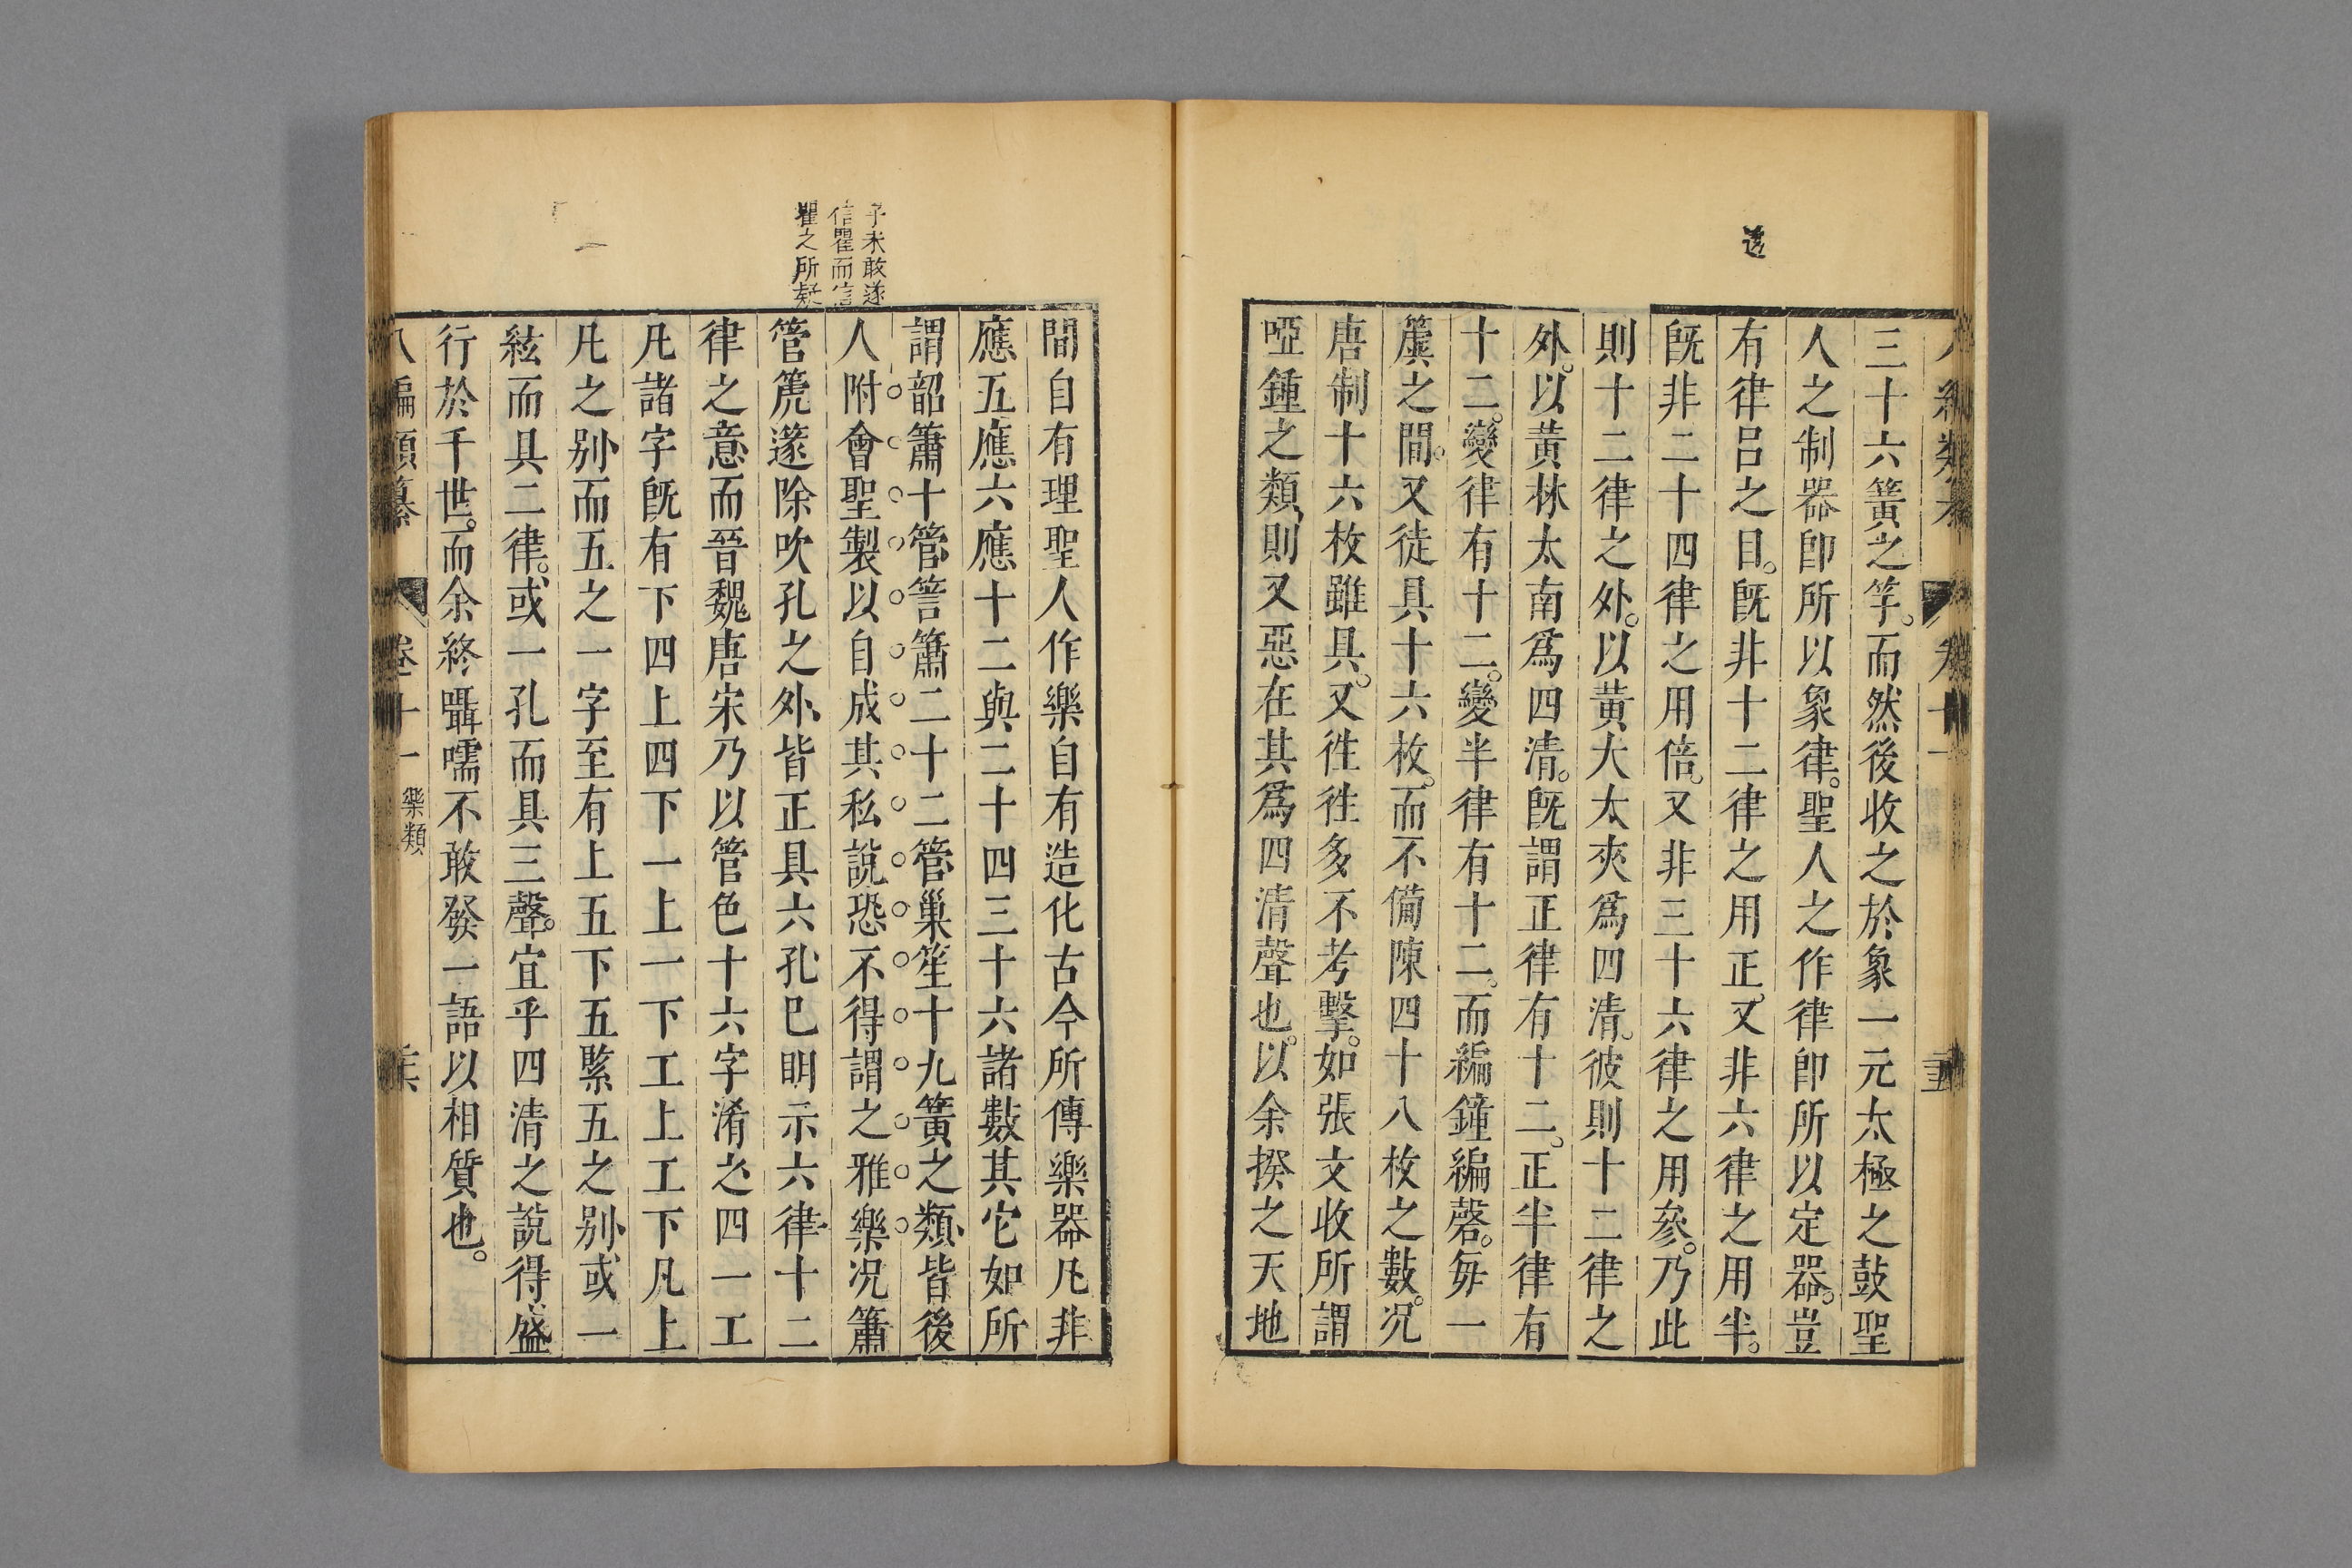 三十六簧之竽。而然後收之於象一元太極之鼓聖
人之制器卽所以象律。聖人之作律卽所以定器。豈
有律呂之目。旣非十二律之用正。又非六律之用半。
旣非二十四律之用倍。又非三十六律之用參。乃此
則十二律之外。以黃大太夾爲四清。彼則十二律之
外。以黃林太南爲四清。旣謂正律有十二。正半律有
十二。變律有十二。變半律有十二。而編鐘編磬。每一
簴之間。又徒具十六枚。而不備陳四十八枚之數。况
唐制十六枚雖具。又徃徃多不考擊。如張文收所謂
啞鍾之類、則又惡在其爲四清聲也。以余揆之天地
予未敢遂
信瞿而信
瞿之所疑
間自有理聖人作樂自有造化古今所傳樂器凡非
應五應六應十二與二十四三十六諸數其它如所
謂韶簫十管筶簫二十二管巢笙十九簧之類、皆後
人附會聖製以自成其私說恐不得謂之雅樂况簫
管箎遂除吹孔之外、皆正具六孔巳明示六律十二
律之意而晉魏唐宋乃以管色十六字淆之四一工
凡諸字旣有下四上四下一上一下工上工下凡上
凡之別而五之一字至有上五下五緊五之別或一
絃而具二律。或一孔而具三聲。宜乎四清之說得盛
行於千世。而余終囁嚅不敢發一語以相質也。
八編類纂
卷十一
樂類